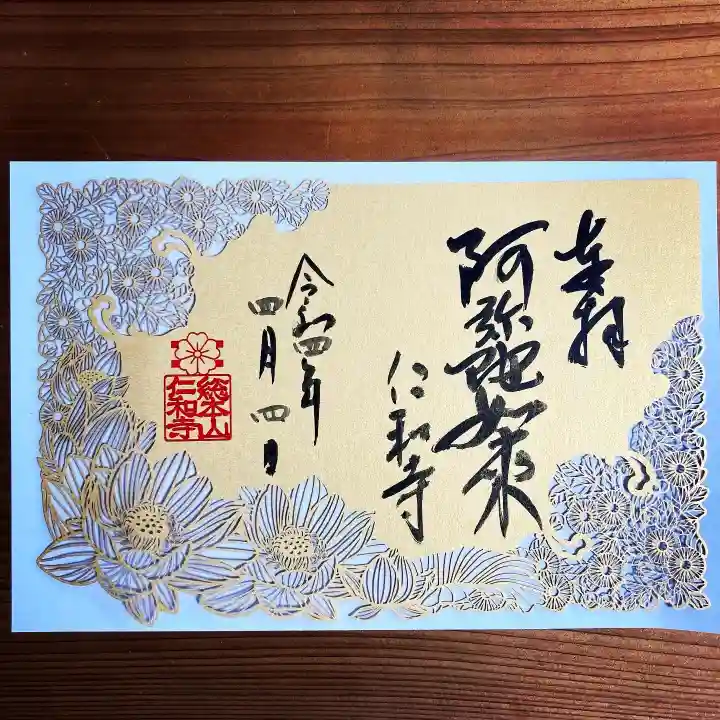 奉拝
阿弥陀如来
仁和寺
令和四年
四月四日
総本山
仁和寺